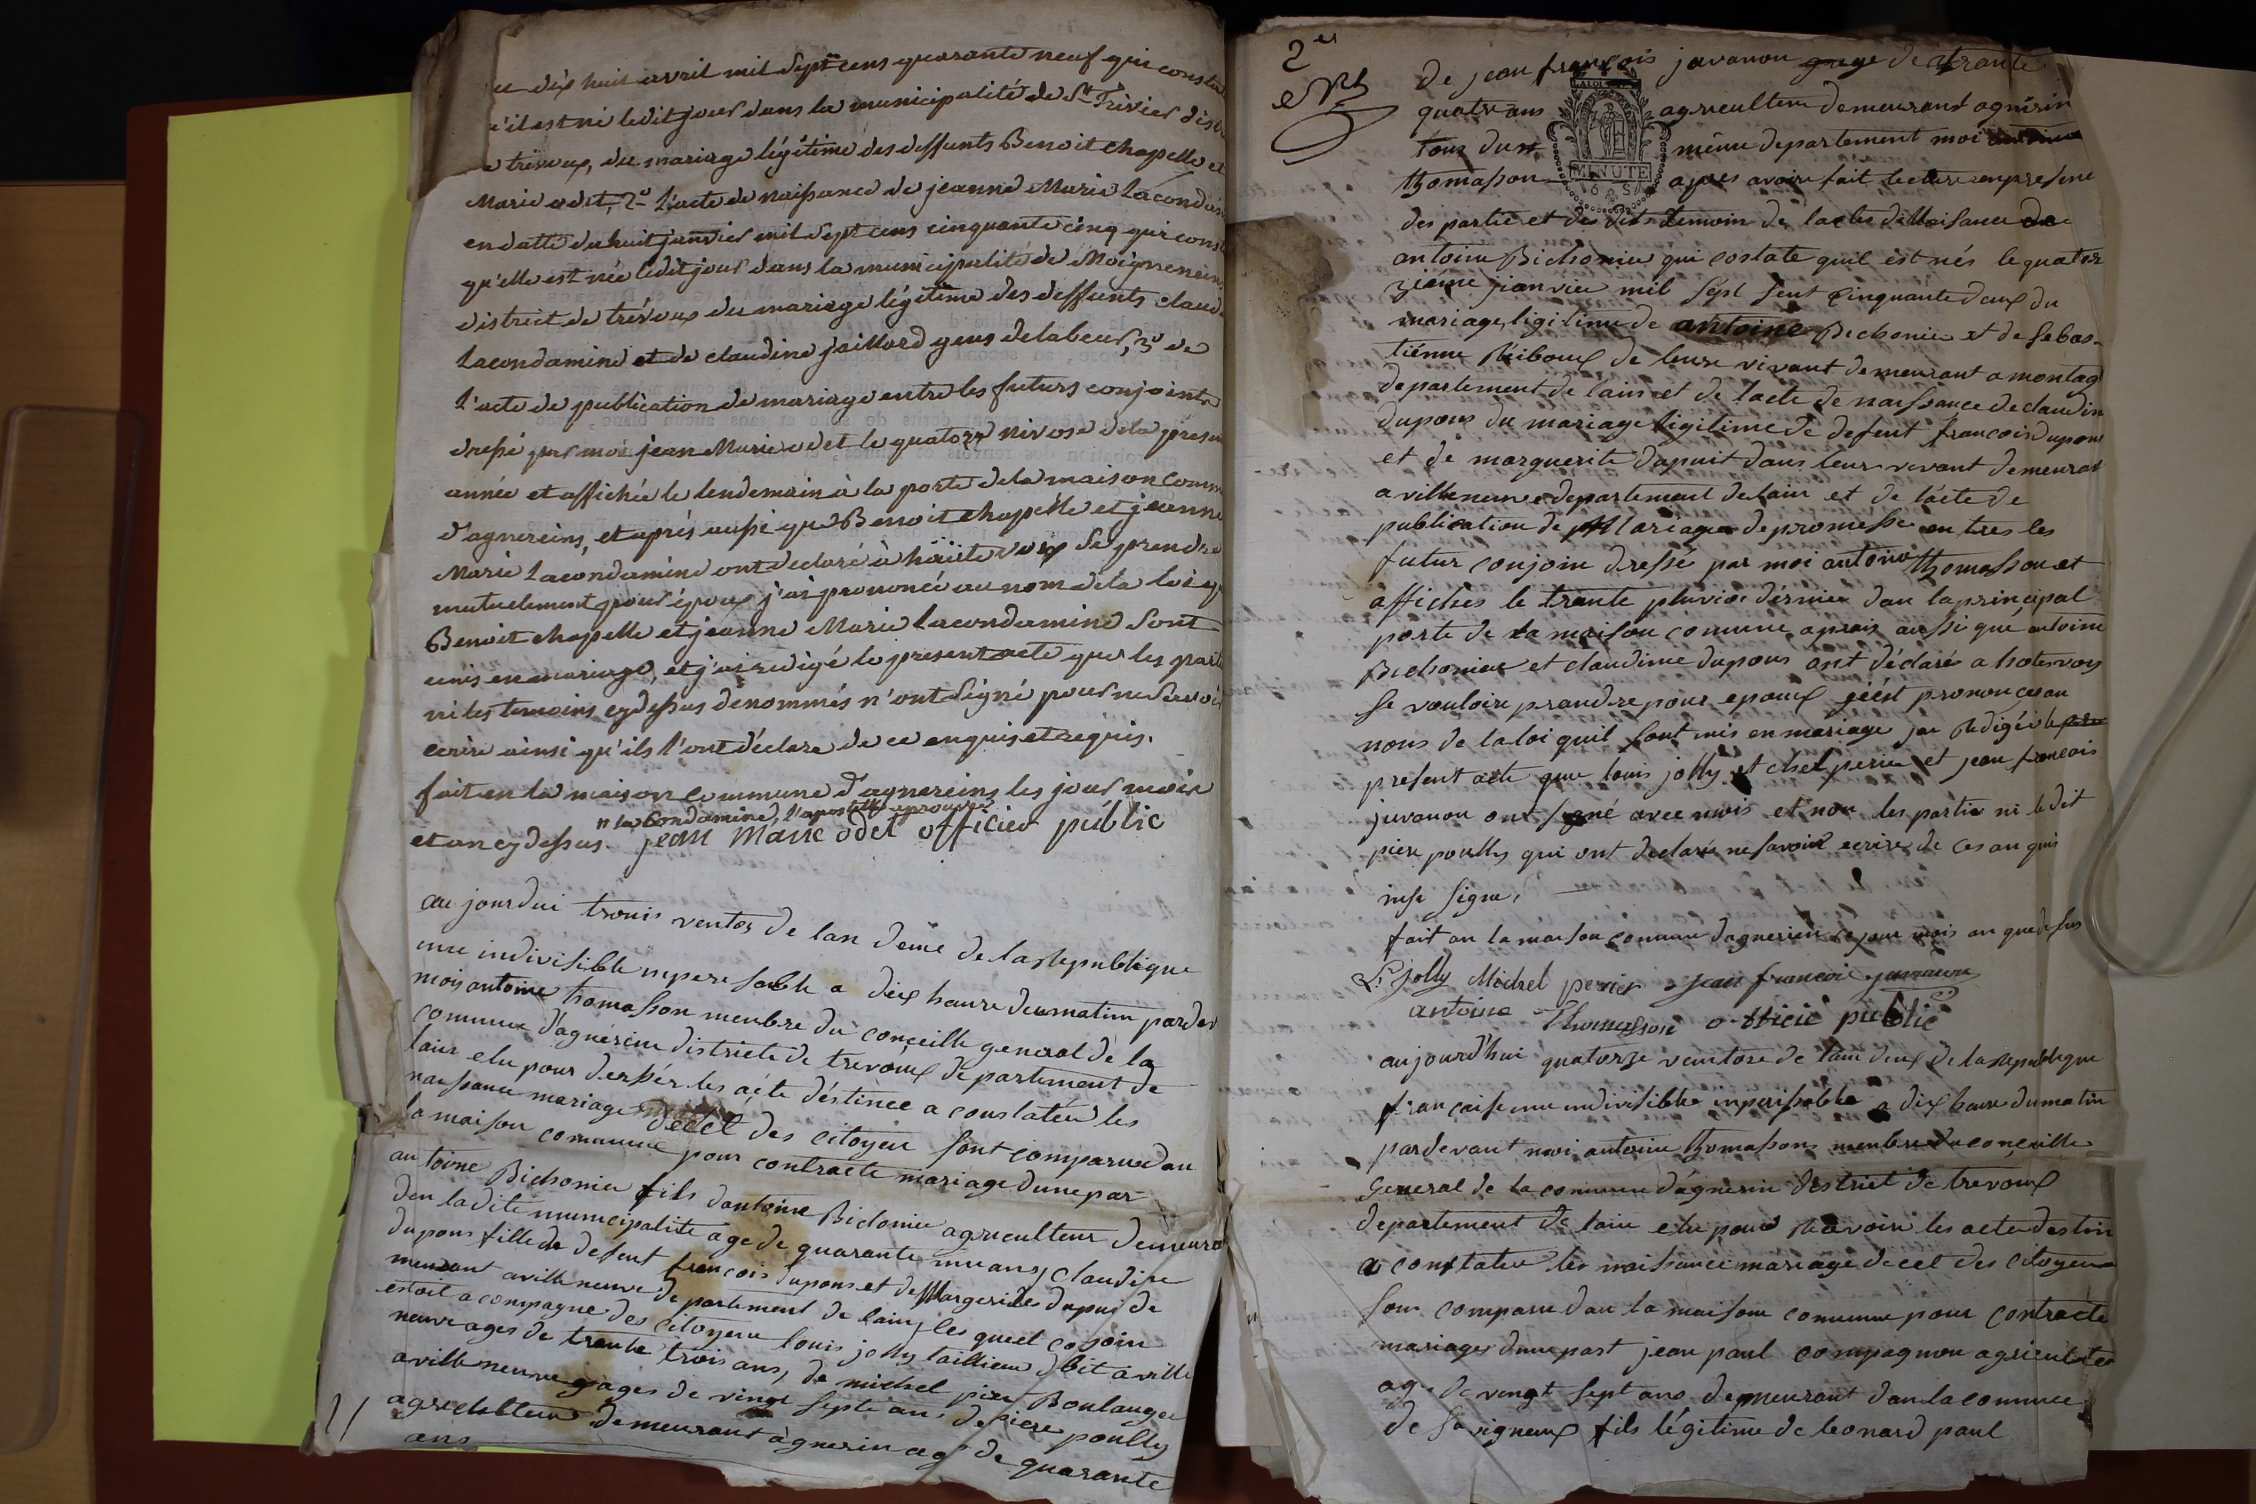 dix huit avril mil sept cens quarante neuf qui const
qu'il est né ledit jour dans la municipalité de St Trivier dist
trévoux, du mariage légitime des deffunts Benoit chapelle et
Marie odet, 2° l'acte de naissance de jeanne Marie Lacondam
en datte du huit janvier mil sept cens cinquante cinq qui cons
qu'elle est née ledit jour dans la municipalité de Moigneneins
district de trévoux du mariage légitime des deffunts claud
Lacondamine et de claudine jaillard gens de labeur, 3° de
L'acte de publication de mariage entre les futurs conjoints
dressé par moi jean Marie odet le quatorze nivose de la presen
année et affichée le lendemain à la porte de la maison comm
d'agnereins, et après aussi que Benoit chapelle et jeanne
Marie Lacondamine ont déclaré à haüte voix se prendre
mutuelement pour époux j'ai prononcé au nom de la loi q
Benoit chapelle et jeanne Marie Lacondamine sont
unis en mariage, et j'ai redigé le present acte que les parti
ni les temoins cy dessus dénommés n'ont signé pour ne savoir
ecrire ainsi qu'ils l'ont déclaré de ce enquis et requis.
fait en la maison commune d'agnereins les jour mois
" la Condamine, l'apostille aprouvée
et an cy dessus. jean marie odet officier public
au jourdui trouis ventos de lan deuxe de la republique
une indivisible inperesable a dix heure dumatin par dev
moi antoine thomasson menbre du conceille general de la
comune d'agnéreins districte de trevoux departement de
lain elu pour dersser les acte déstinée a constater les
naissance mariage décet des citoyen sont comparue dan
la maison comunne pour contracte mariage dune par
antoine Bichonier fils dantoine Bichonier agriculteur demeura
dan ladite municipalite age de quarante une ans, claudine
dupons fille de defunt francois dupons et de Margerite dupui de
meurant avilleneuve departement de lain, les quel cosoin
estoit acompagné des citoyen louis jolly taillieur dbit aville
neuve ages de trante trois ans, de michel pirer Boulanger
avilleneuve ages de vingt septe ans de piere poully
agriculteur demeurant àgnerin age de quarante
ans
2es
de jean françois javanon age de trante
quatre ans agriculteur demeurant agnérin
tous du même departement moi
thomasson apres avoir fait lecture enpresene
des partie et des dits temoin de lacte de Naisance de
antoine Bichonier qui costate quil est nés le quator
zième jianvier mil sept sent cinquante deux du
mariage ligitime de antoine Bichonier et de Sebas-
tiénne Riboux de leure vivant demeurant a montag
departement de lain et de lacte de naissance de claudin
dupons du mariage ligitime de defent francois dupons
et de marguerite dupuit dans leur vivant demeurat
a villeneuve departement de lain et de lacte de
publication de Mariage de promesse en tres les
futur conjoin dressé par moi antoine thomasson et
affiches le trante pluvios dérnier dan laprincipal
porte de la maison comune apres aussi que antoine
Bichonier et claudine dupons ont déclaré a hotevoy
se vouloire prandre pour epoux jéést prononces au
nons de la loi quil sont unis en mariage jai Rédigée le
présent acte que louis jolly et chel perier et jean francois
javanon ont signé avec mois et non les partie ni ledit
piere poully qui ont declaré ne savoir ecrire de ces an quis
insi signe,
fait an la maison comune dagnerein le jour mois an que desus
L. jolly Michel perier jean francoi javanon
antoine Thomasson officié public
aujourd'hui quatorze ventose de lan deux de la republique
française une indivisible inperisable a dix heure dumatin
pardevant moi antoine thomasson menbre du conceille
General de la comune dágnerin destrict de trevoux
departement de lain elu pour resavoir les acte destin
a constater les naissance mariage decet des citoyen
son comparu dan la maison comunne pour contracte
mariage dune part jean paul compagnon agriculteu
age de vengt sept ans demeurant dan la comune
de Savigneux fils légitime de leonard paul
MINUTE